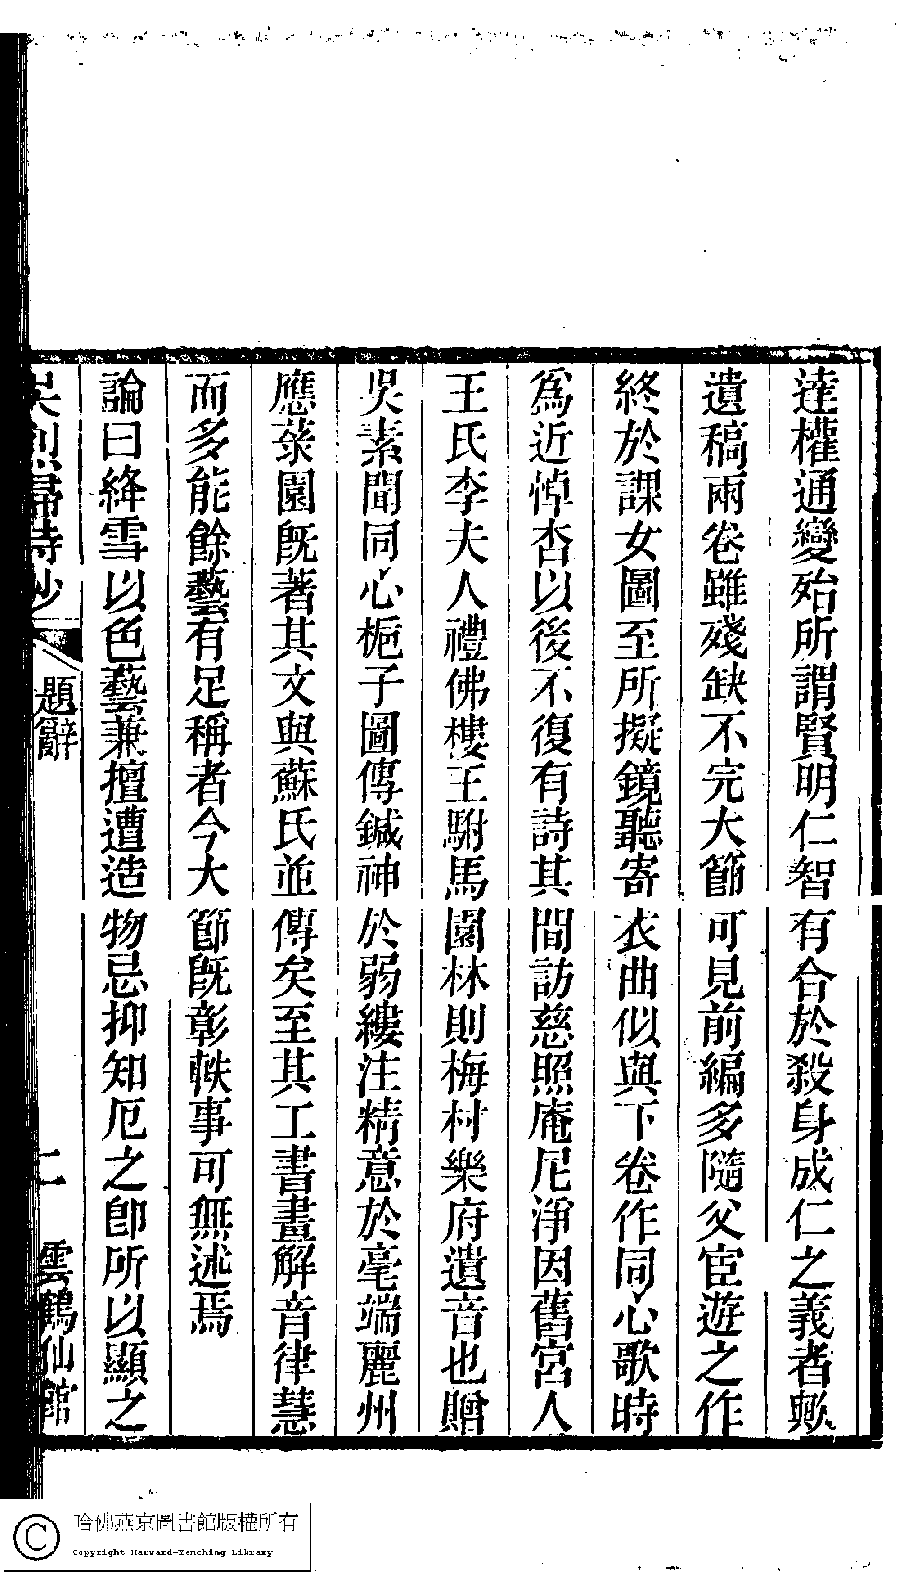 達權通變殆所謂賢明仁智有合於殺身成仁之義者歟
遺稿兩卷雖殘缺不完大節可見前編多隨父宦遊之作
終於課女圖至所擬鏡聽寄衣曲似與下卷作同心歌時
為近悼杏以後不復有詩其間訪慈照庵尼淨因舊宮人
王氏李夫人禮佛樓王駙馬園林則梅村樂府遺音也贈
吳素聞同心梔子圖傳鍼神於弱縷注精意於毫端麗州
應菉園旣著其文與蘇氏並傳矣至其工書畫解音律慧
而多能餘藝有足稱者今大節旣彰軼事可無述焉
論曰絳雪以色藝兼擅遭造物忌抑知厄之卽所以顯之
吳烈婦詩鈔
題辭
二
雲鶴仙館
哈佛燕京圖書館版權所有
Copyright Harvard-Yenching Library